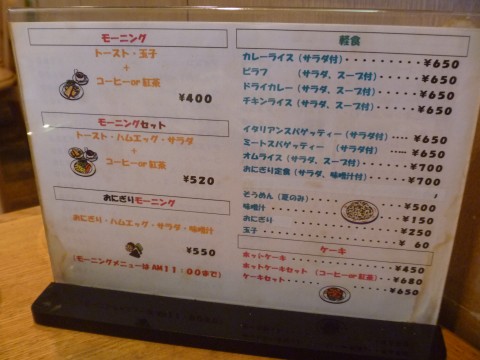 モーニング
トースト・玉子
+
コーヒーor紅茶
¥400
モーニングセット
トースト・ハムエッグ・サラダ
+
コーヒーor紅茶
¥520
おにぎりモーニング
おにぎり・ハムエッグ・サラダ・味噌汁
¥550
(モーニングメニューはAM11:00まで)
軽食
カレーライス(サラダ付)・・・・・¥650
ピラフ (サラダ、スープ付)・・・・・¥650
ドライカレー(サラダ、スープ付)・・・・・¥650
チキンライス(サラダ、スープ付)・・・・・¥650
イタリアンスパゲッティー(サラダ付)・・・・¥650
ミートスパゲッティー (サラダ付)・・・・¥650
オムライス(サラダ、スープ付)・・・・・・¥700
おにぎり定食(サラダ、味噌汁付)・・・・・¥700
そうめん(夏のみ)・・・・・¥500
味噌汁・・・・・¥150
おにぎり・・・・・¥250
玉子・・・・・¥ 60
ケーキ
ホットケーキ・・・・・¥450
ホットケーキセット (コーヒーor紅茶)・・・・・¥680
ケーキセット・・・・・¥650